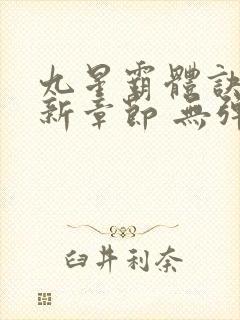 九星霸體訣
新章節 無彈
臼井利奈